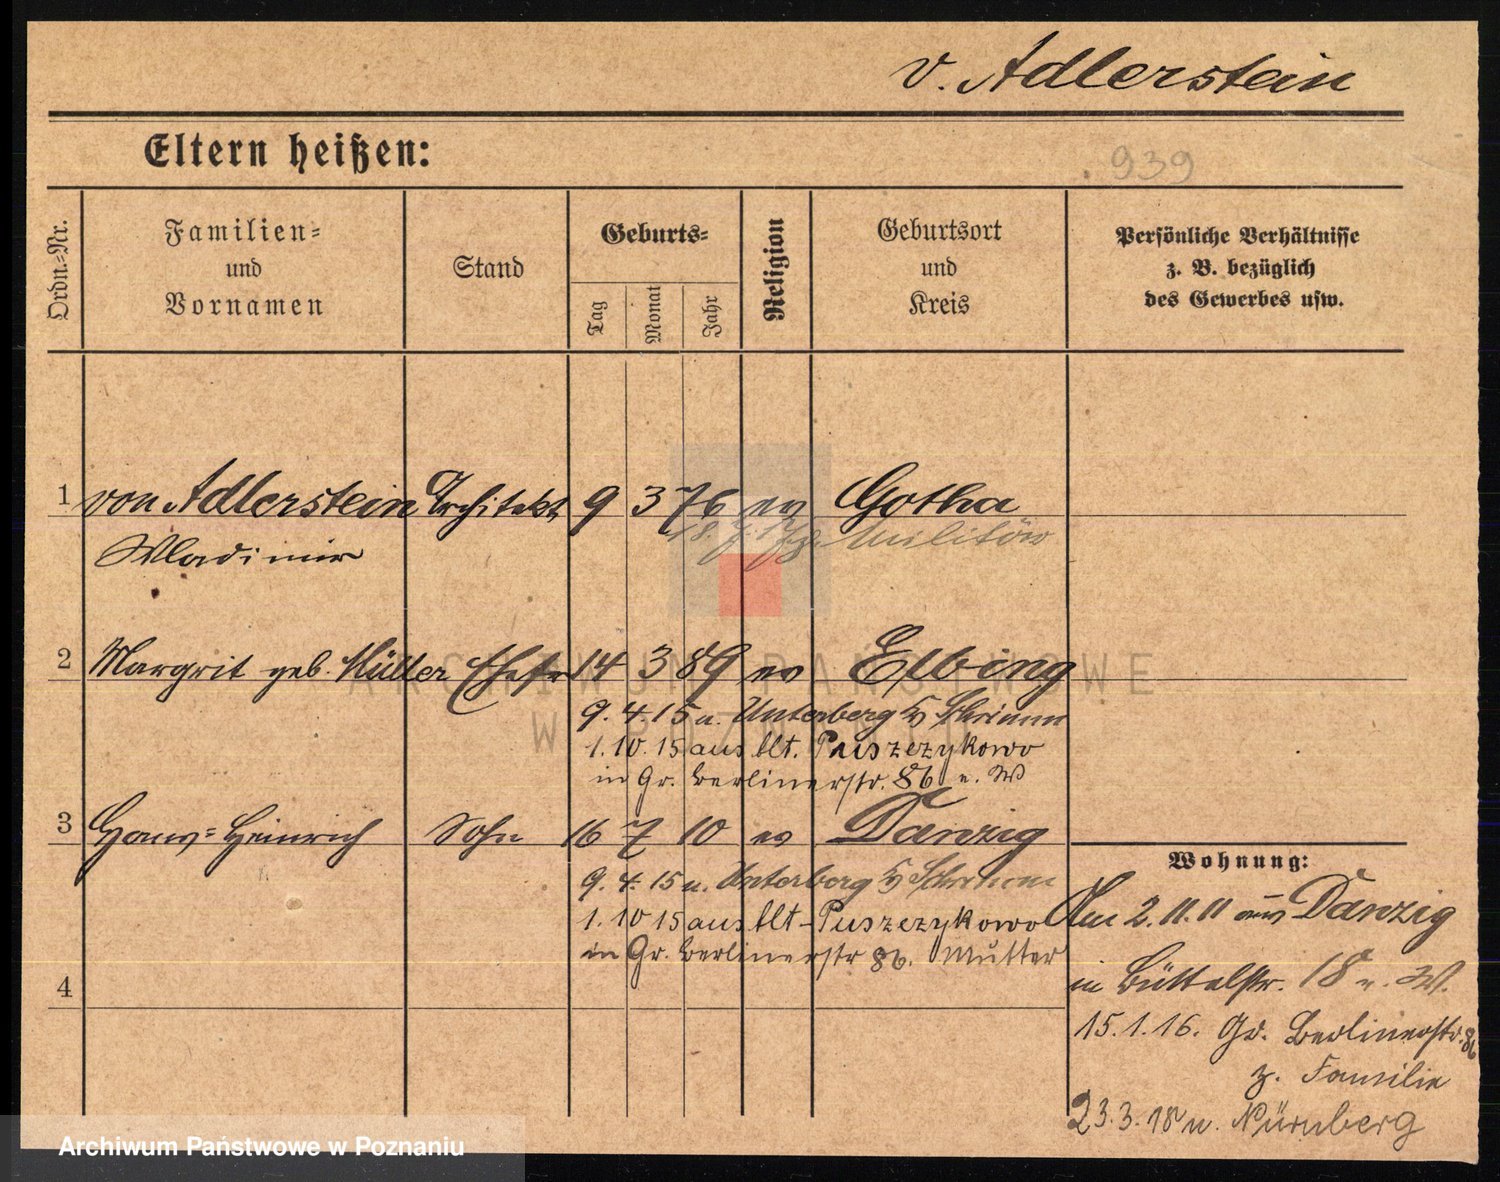 v. Adlerstein
Eltern heißen:
939
Ordn.-Nr.
Familien-
und
Vornamen
Stand
Geburts-
Tag
Monat
Jahr
Religion
Geburtsort
und
Kreis
Persönliche Verhältnisse
z. B. bezüglich
des Gewerbes usw.
1 von Adlerstein Architekt 9 3 76 ev Gotha
Wladimir
18. z. Militär
2 Margrit geb. Müller Ehefr 14 3 89 ev Elbing
9. 4. 15 n. Unterberg Schrimm
1. 10. 15 aus blt. Puszczykowo
in Gr. Berlinerstr. 86 b. W
3 Hans-Heinrich Sohn 16 7 10 ev Danzig
9. 4. 15 n. Unterberg Schrimm
1. 10 15 aus blt-Puszczykowo
in Gr. Berlinerstr 86. Mutter
4
Wohnung:
Am 2. 11. 11 aus Danzig
in Büttelstr. 18 W.
15. 1. 16. Gr. Berlinerstr. 86
z. Familie
23. 3. 18 n. Nürnberg
ARCHIWUM PAŃSTWOWE
W POZNANIU
Archiwum Państwowe w Poznaniu